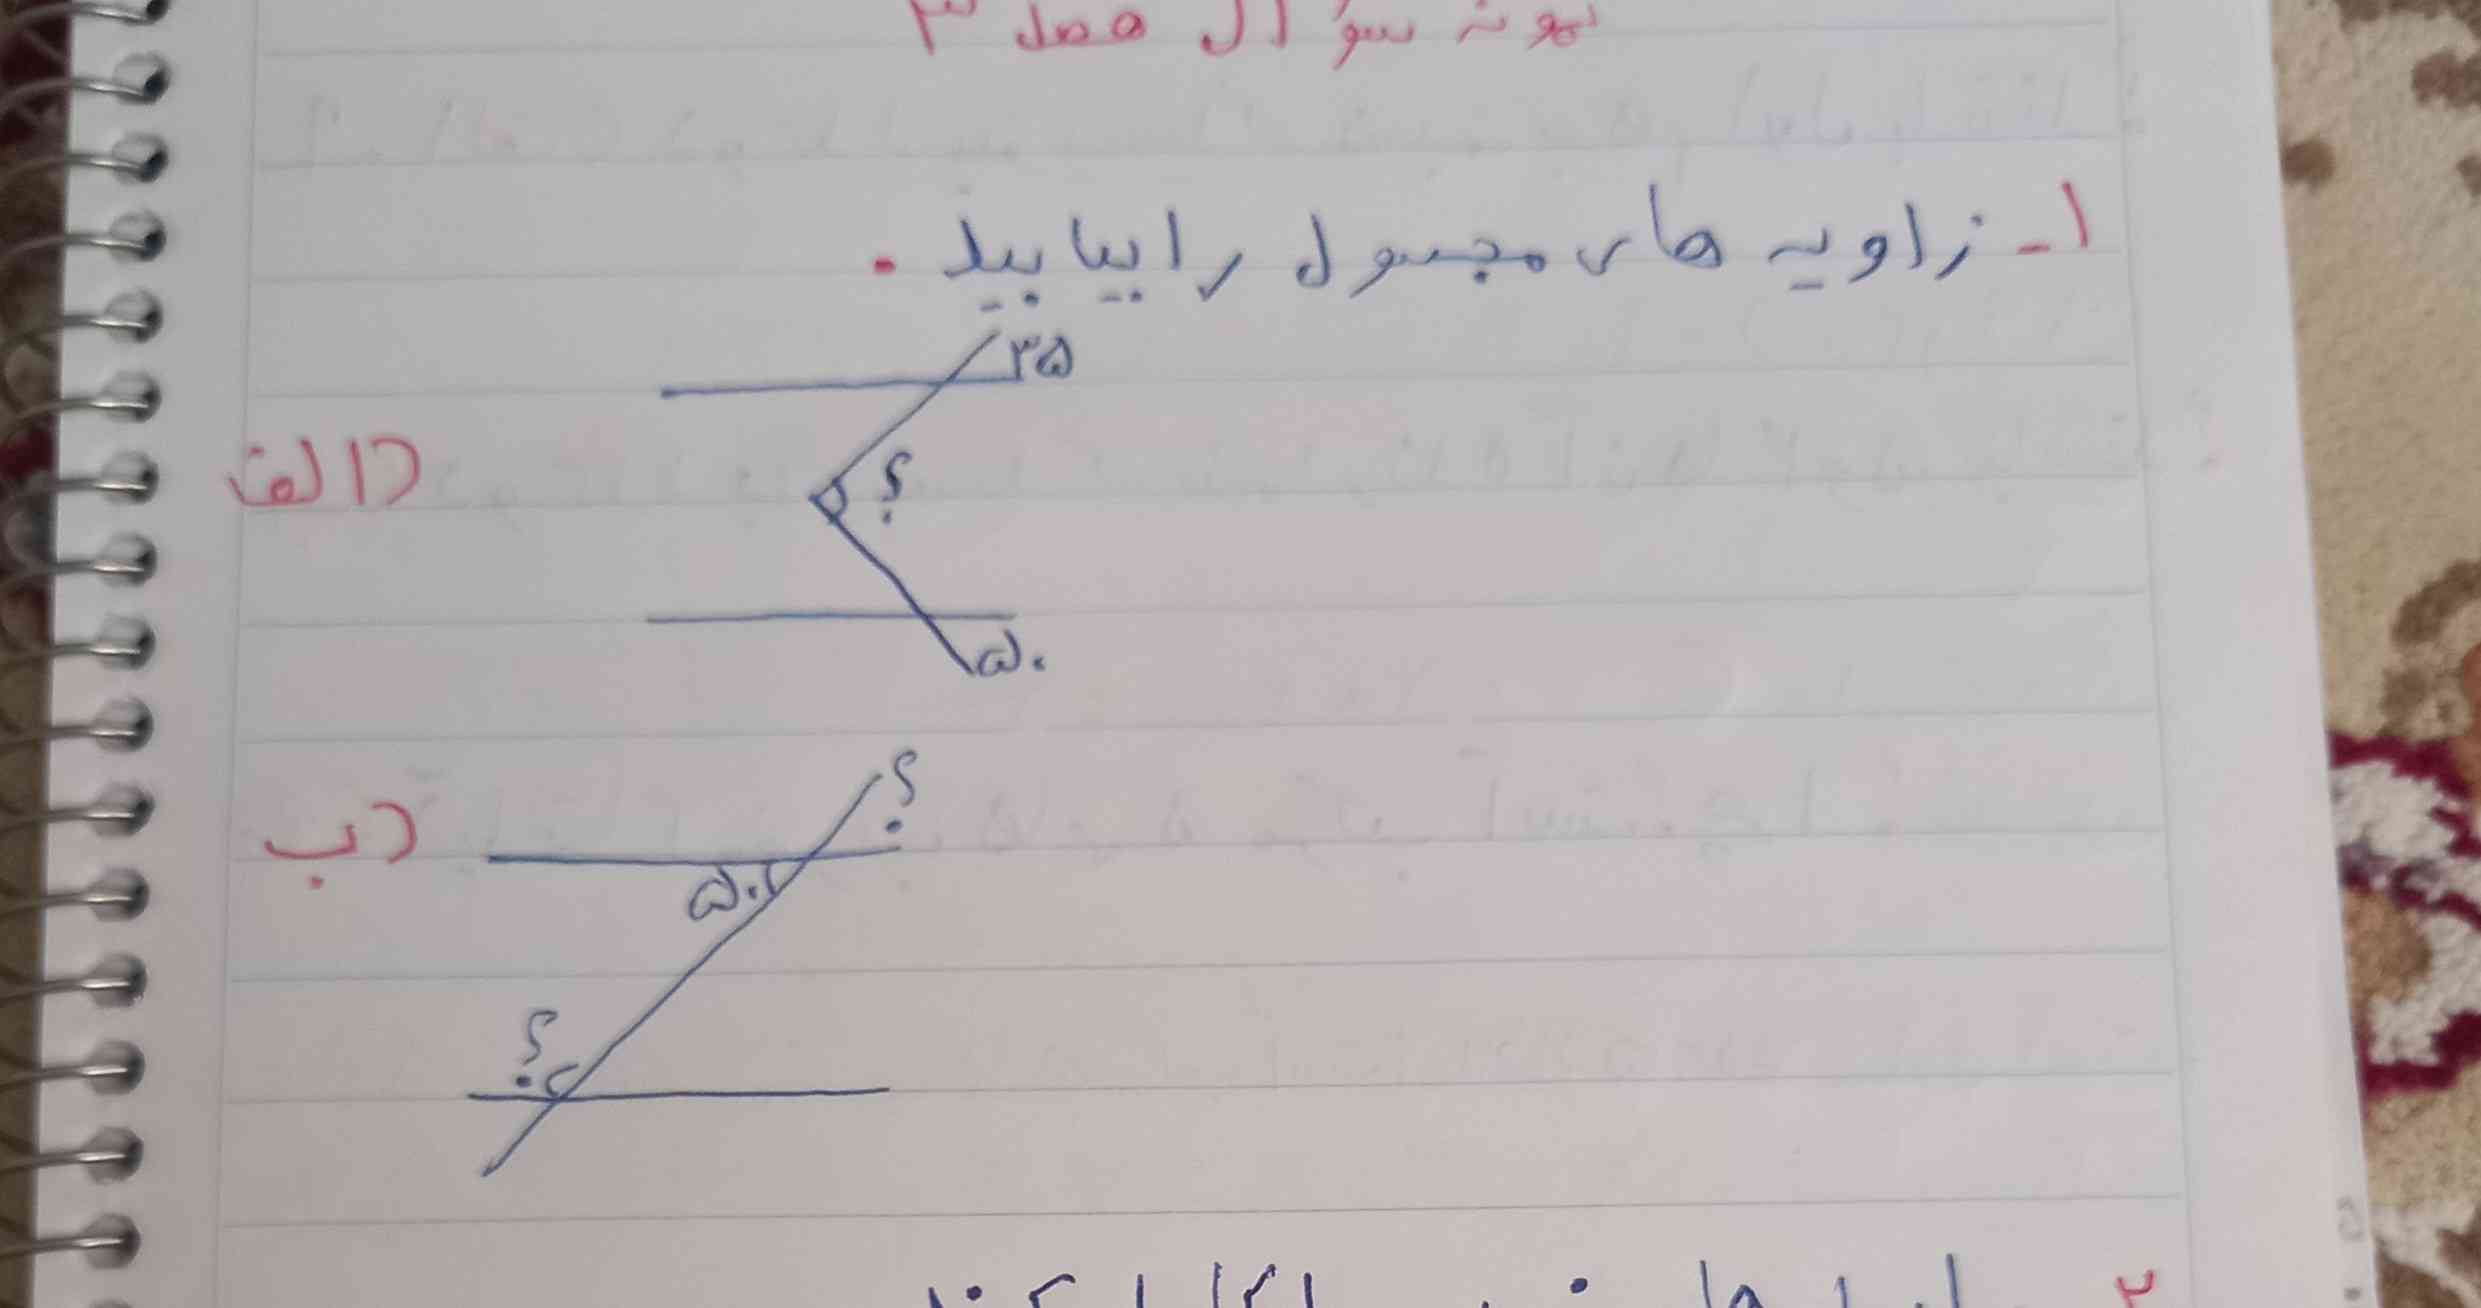 نمونه سؤال فصل ۳
۱- زاویه های مجهول را بیابید.
الف)
۳۵
؟
۵۰
ب)
؟
۵۰
؟
۲